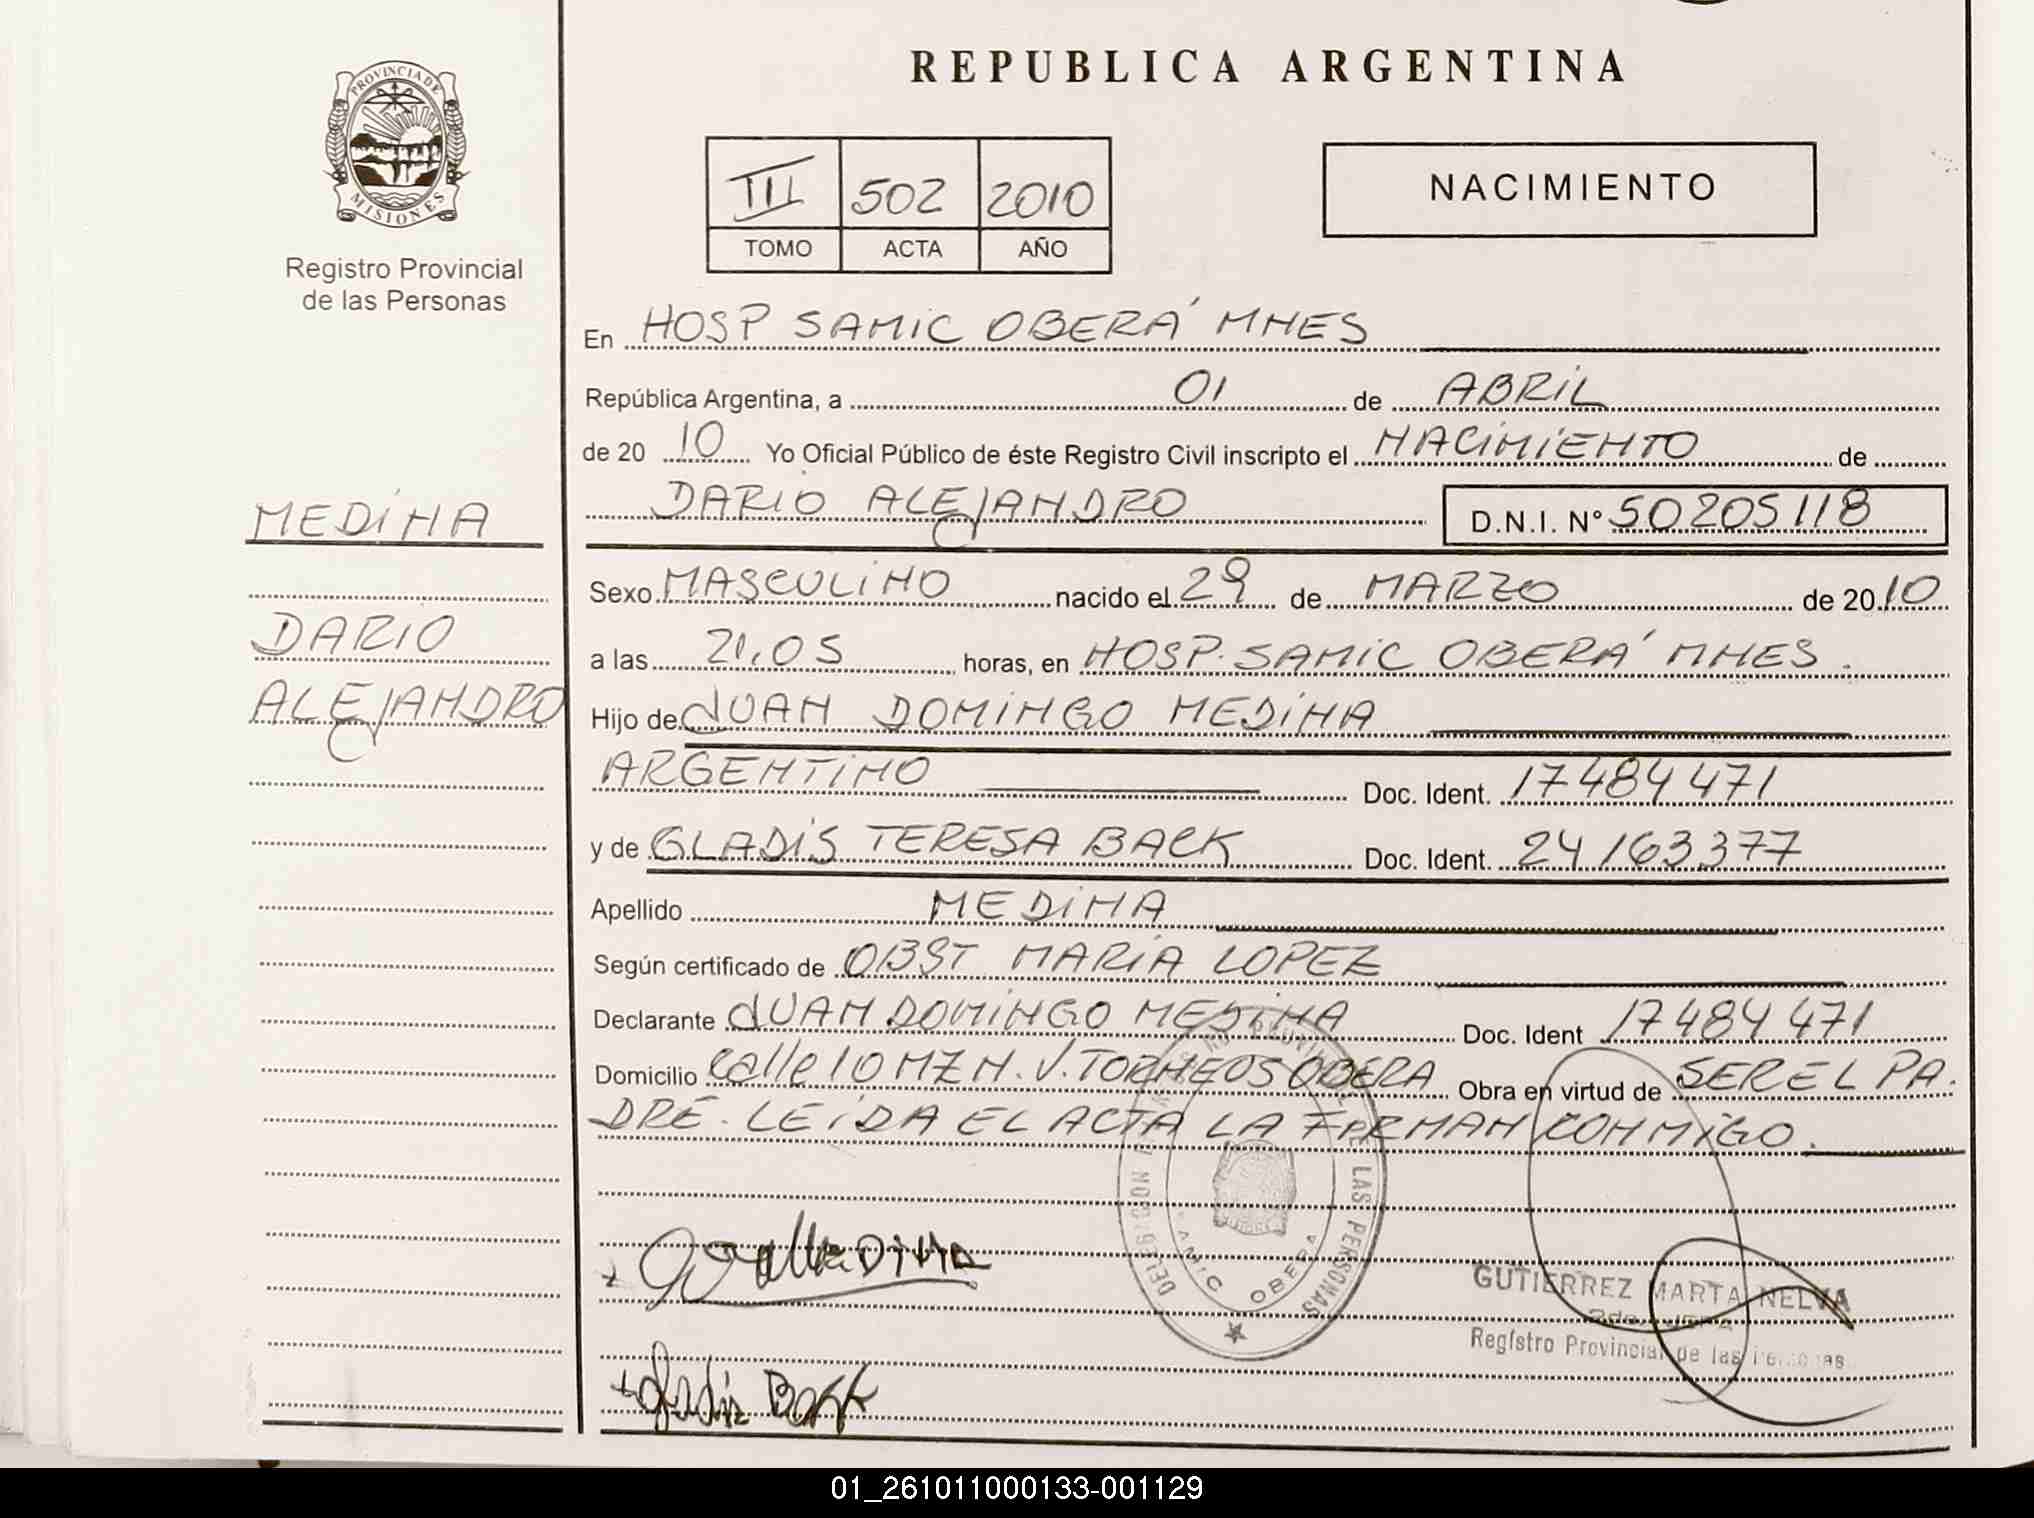 REPUBLICA ARGENTINA
PROVINCIA DE
MISIONES
Registro Provincial
de las Personas
III 502 2010
TOMO ACTA AÑO
NACIMIENTO
En HOSP SAMIC OBERÁ MNES
República Argentina, a 01 de ABRIL
de 20 10 Yo Oficial Público de éste Registro Civil inscripto el NACIMIENTO de
DARIO ALEJANDRO D.N.I. N° 50205118
MEDINA
DARIO
ALEJANDRO
Sexo MASCULINO nacido el 29 de MARZO de 20 10
a las 21,05 horas, en HOSP. SAMIC OBERÁ MNES.
Hijo de JUAN DOMINGO MEDINA
ARGENTINO Doc. Ident. 17484471
y de GLADIS TERESA BACK Doc. Ident. 24163377
Apellido MEDINA
Según certificado de OBST MARIA LOPEZ
Declarante JUAN DOMINGO MEDINA Doc. Ident 17484471
Domicilio calle 10 MZ N. V. TORNEOS OBERA Obra en virtud de SER EL PA.
DRE. LEIDA EL ACTA LA FIRMAN CONMIGO.
DELEGACION LAS PERSONAS
SAMIC OBERA
GUTIERREZ MARTA NELVA
2da. JEFA
Registro Provincial de las Personas
Gladis Back
01_261011000133-001129